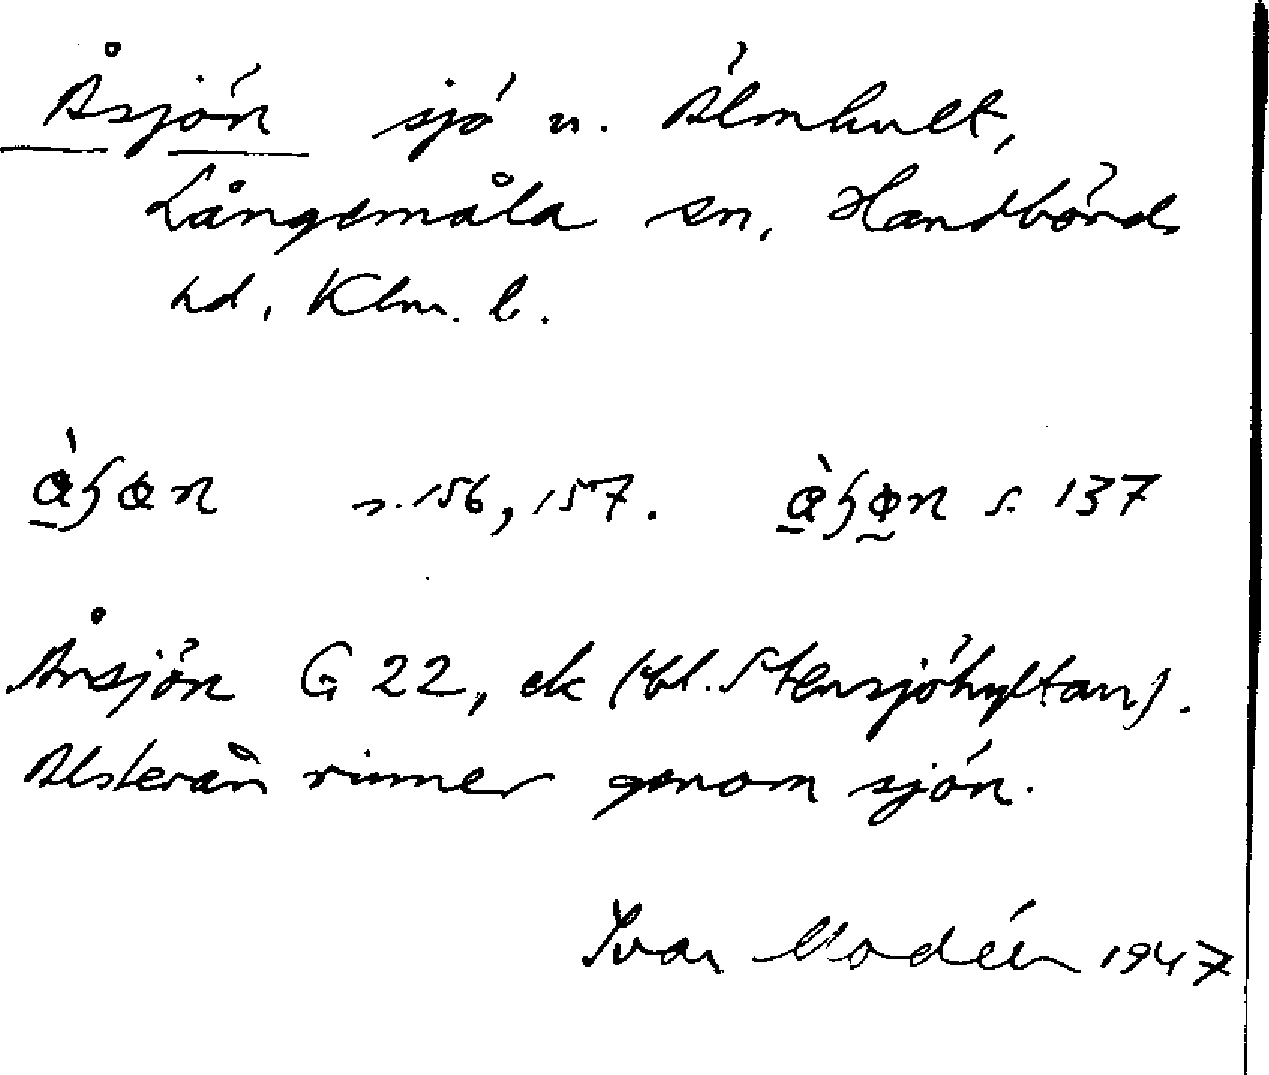 Åsjön sjö n. Älmhult,
Långemåla sn, Handbörds
hd, Klm. l.
s. 156, 157. s. 137
Årsjön G 22, ek (bl. Stensjöhyltan).
Alsterån rinner genom sjön.
Ivar Modéer 1947